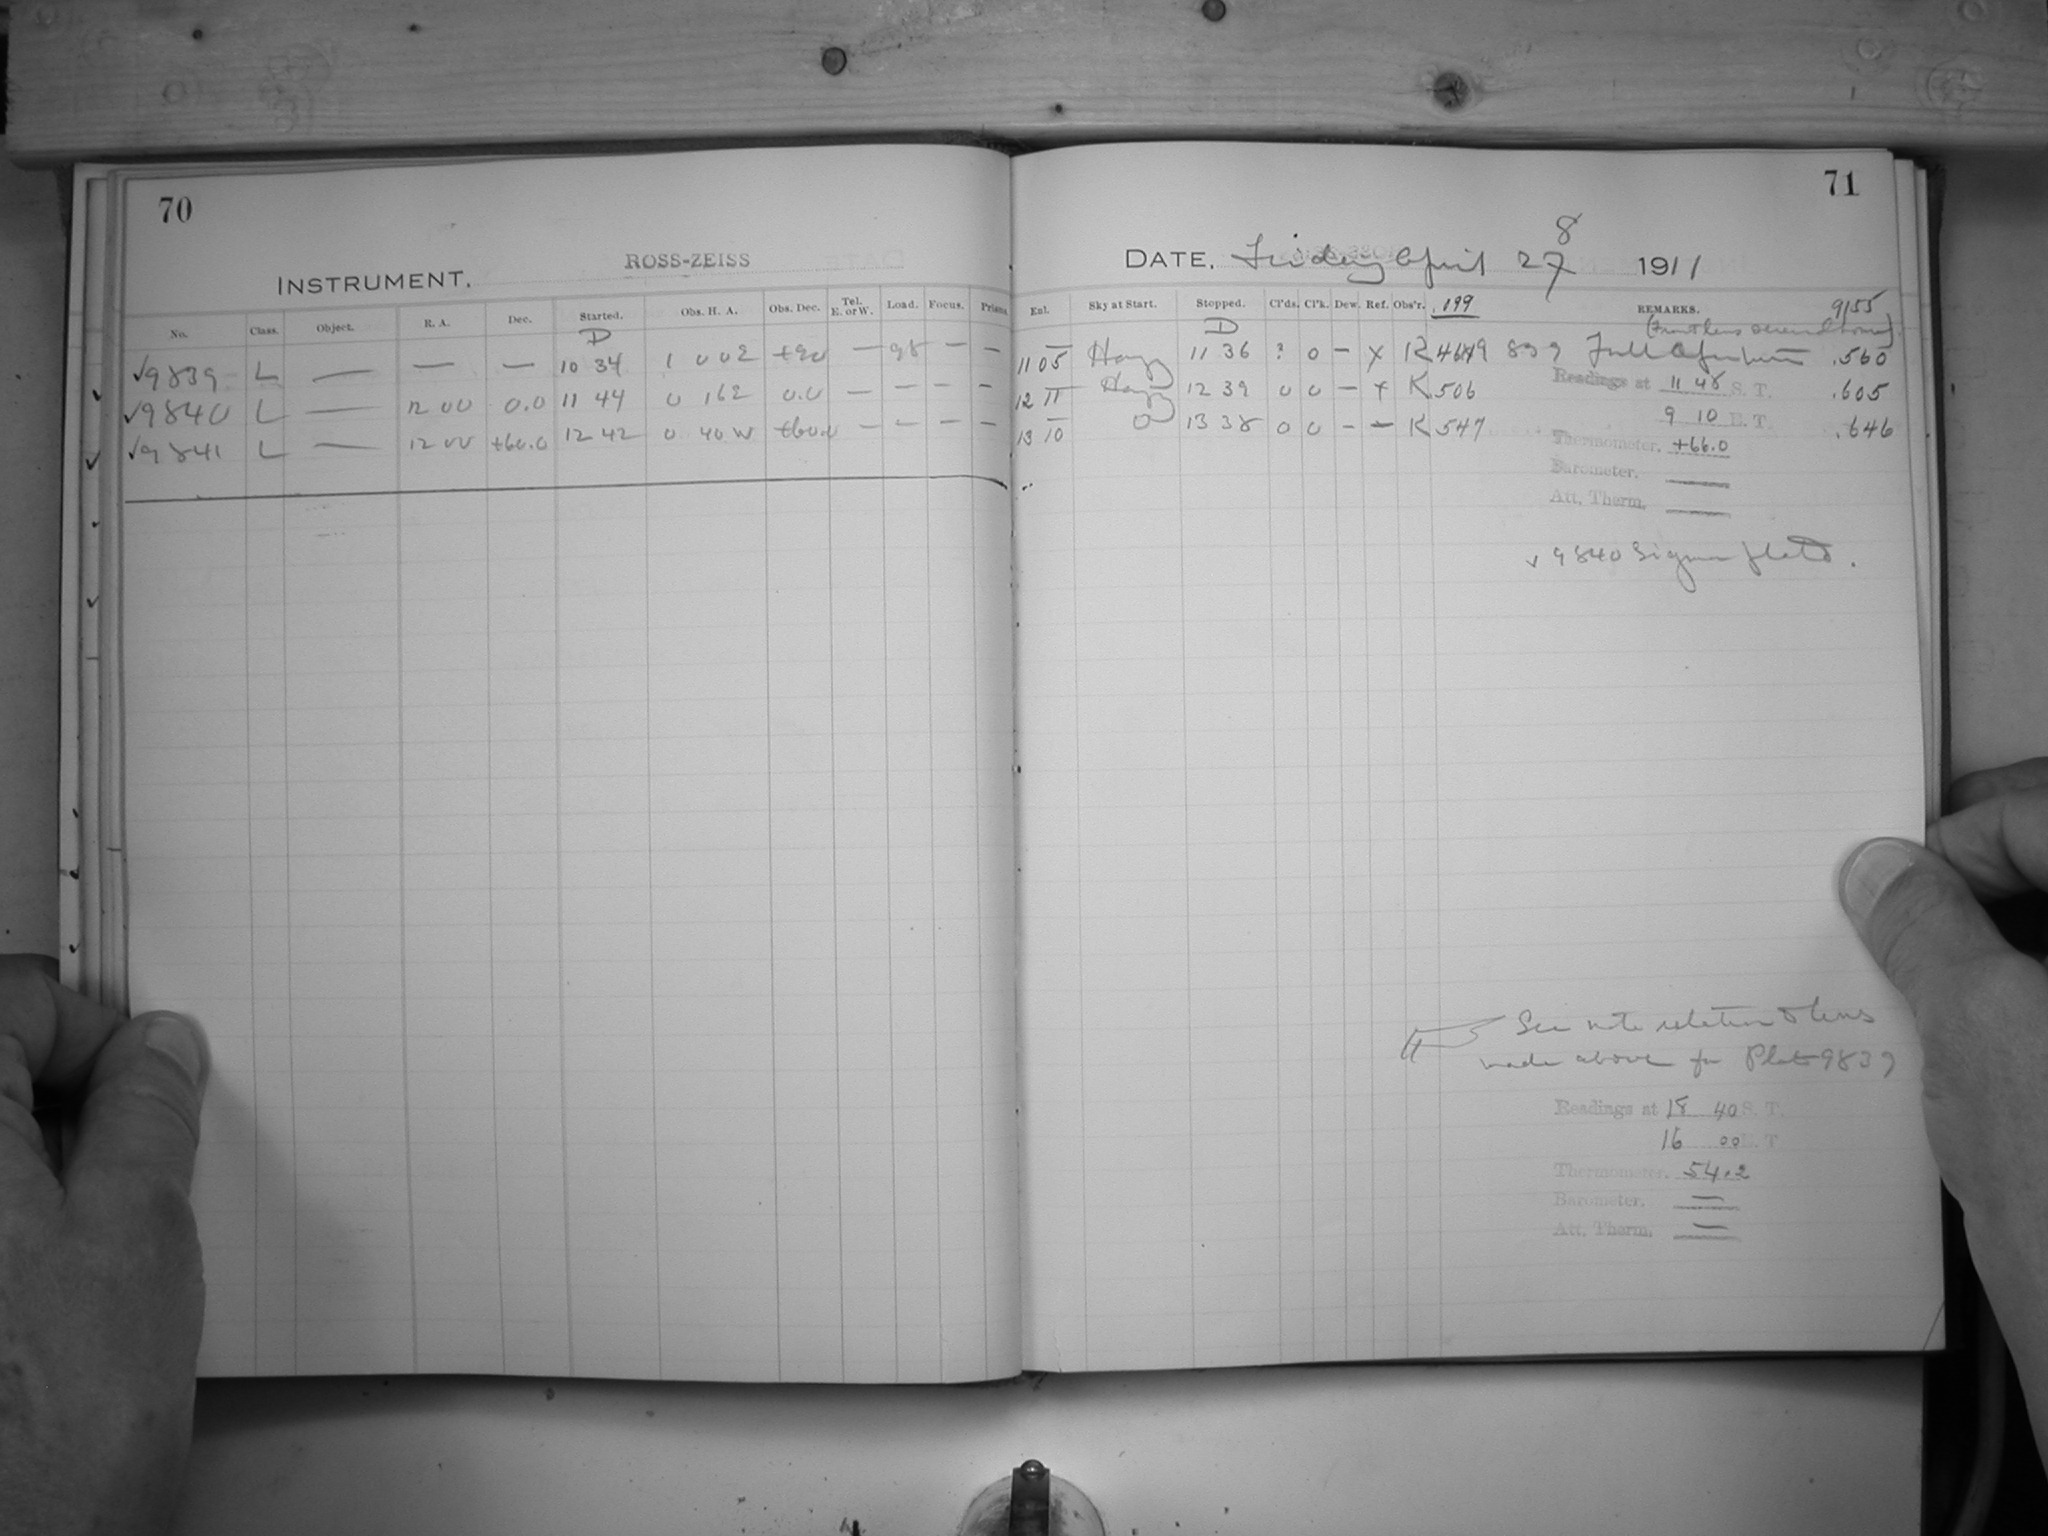 70
INSTRUMENT. ROSS-ZEISS
No. Class. Object. R. A. Dec. Started. Obs. H. A. Obs. Dec. Tel. E. or W. Load. Focus. Prisms.
D
✓9839 L — — — 10 34 1 002 +90 — 98 — —
✓9840 L — 12 00 0.0 11 44 0 162 0.0 — — — —
✓9841 L — 12 00 +60.0 12 42 0 40 W +60.0 — — — —
71
8
DATE. Friday April 27 1911
Ent. Sky at Start. Stopped. Cl'ds. Cl'k. Dew. Ref. Obs'r. .199 REMARKS. 9155
D
11 05 Hazy 11 36 ? 0 — x K 839 Full Aperture .560
Readings at 11 48 S. T.
12 11 Hazy 12 39 0 0 — x K 506 .605
9 10 E. T.
13 10 0 13 38 0 0 — — K 547 .646
Thermometer. +66.0
Barometer. —
Att. Therm. —
✓ 9840 Sigma plate.
See note relation to lens
made above for Plate 9839
Readings at 18 40 S. T.
16 00 E. T
Thermometer. 54.2
Barometer. —
Att. Therm. —